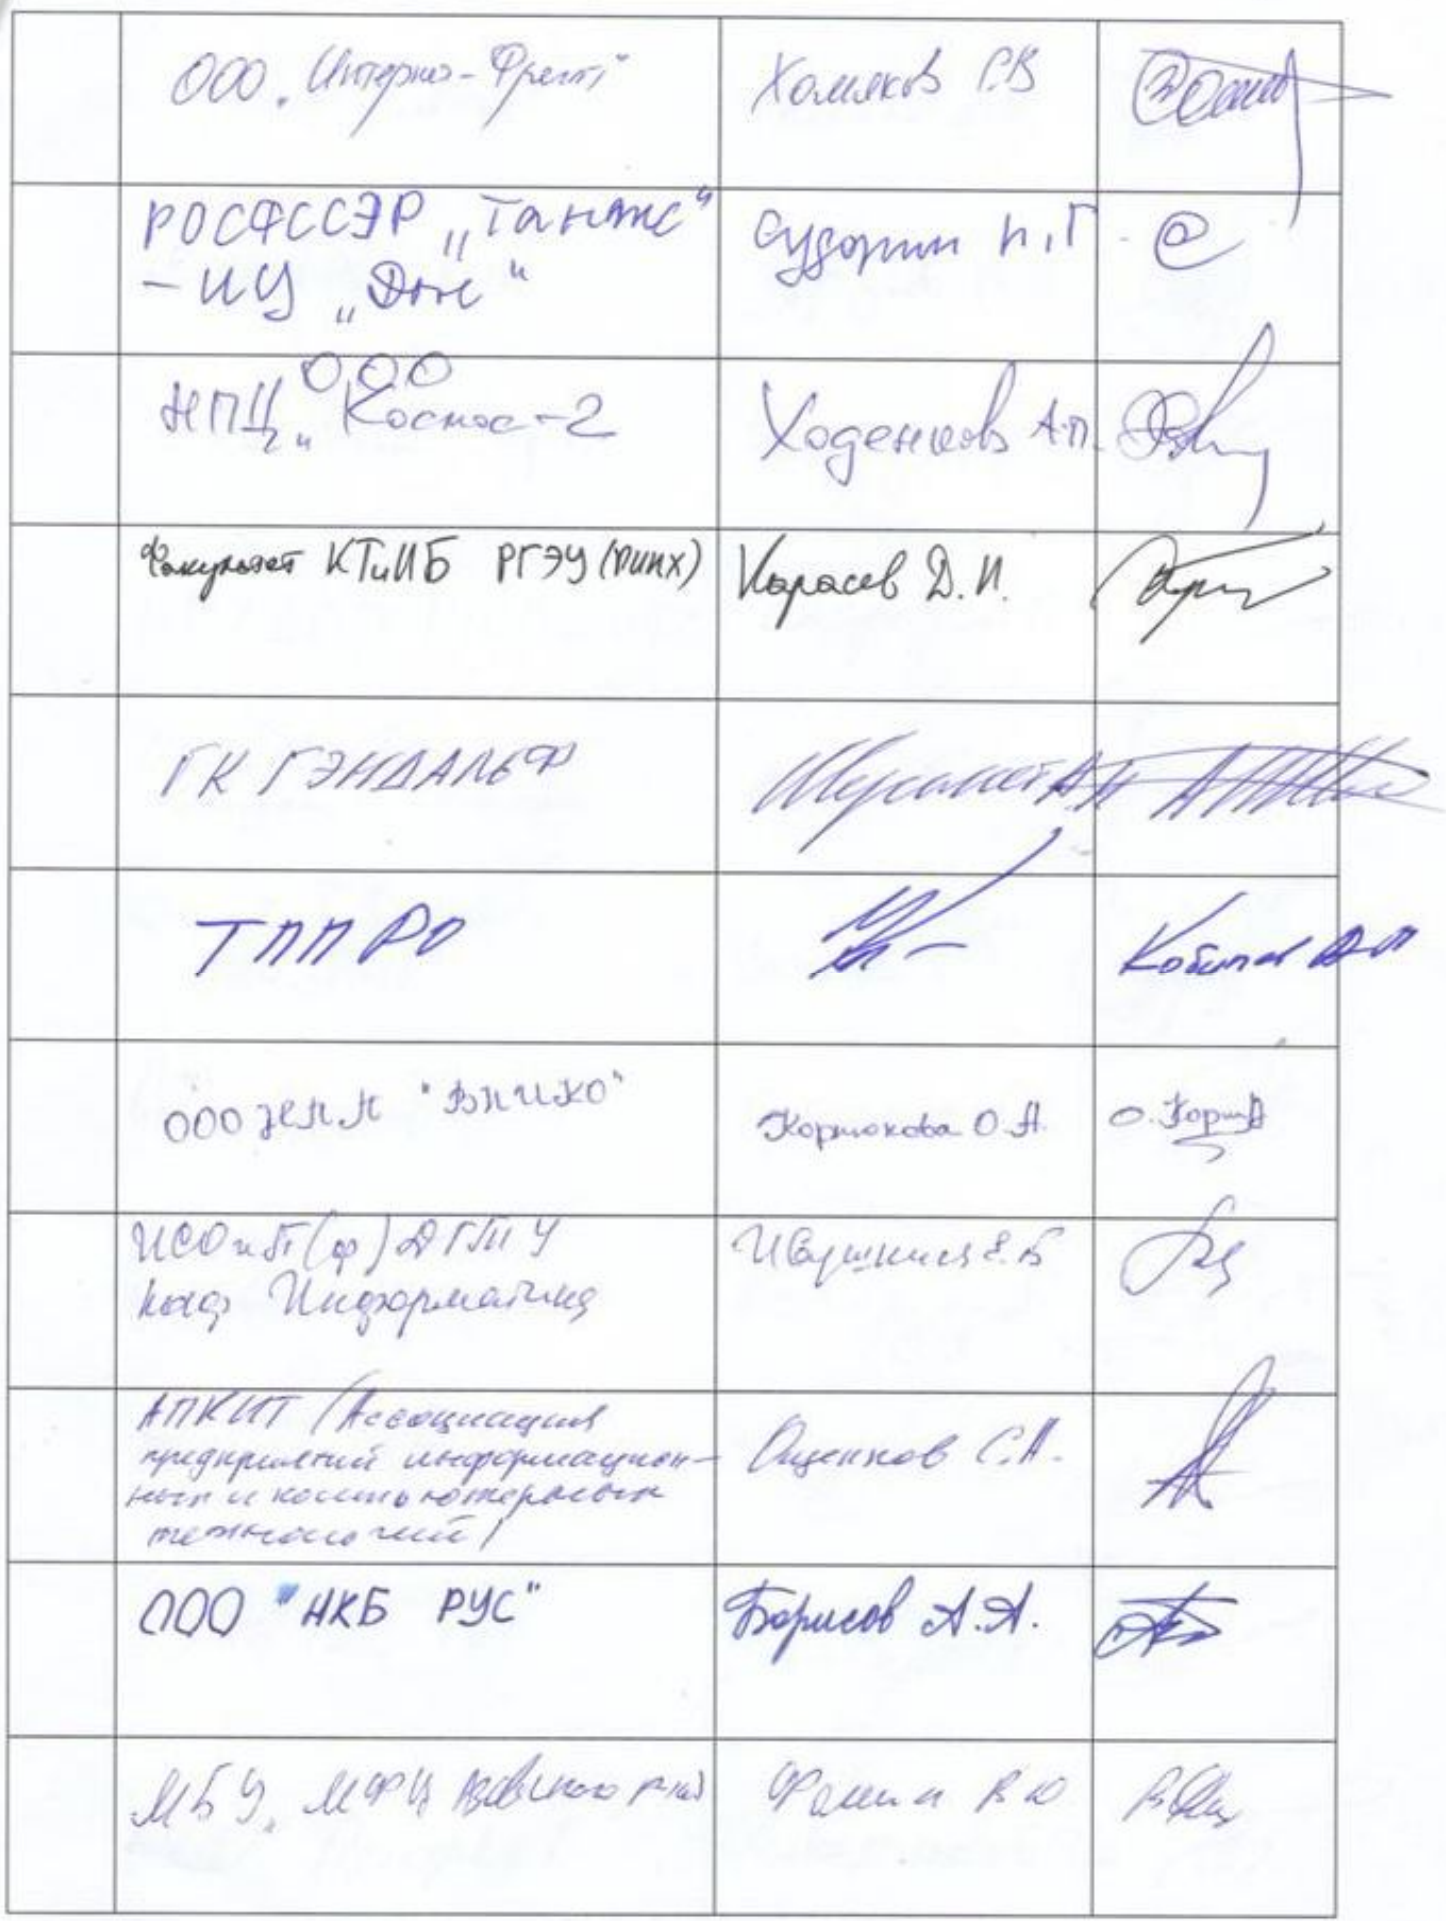 ООО „Интерно-
Хомяков С.В
РОСФССЭР „Танаис"
Сударкин
– ИЦ „Дон"
ООО
НПЦ „Космос-2
Ходенков А.П.
Факультет КТиИБ РГЭУ (РИНХ)
Карасев Д.И.
ГК ГЭНДАЛЬФ
ТПП РО
ООО НПП "ВНИКО"
Кортокова О.А.
ИСОиП(ф)ДГТУ
каф Информатика
Ивушкина Е.Б
АПКИТ (Ассоциация
предприятий информацион-
ных и компьютерных
технологий)
Ощенков С.А.
ООО "НКБ РУС"
Борисов А.А.
МБУ „МФЦ Азовского
Фомин В Ю